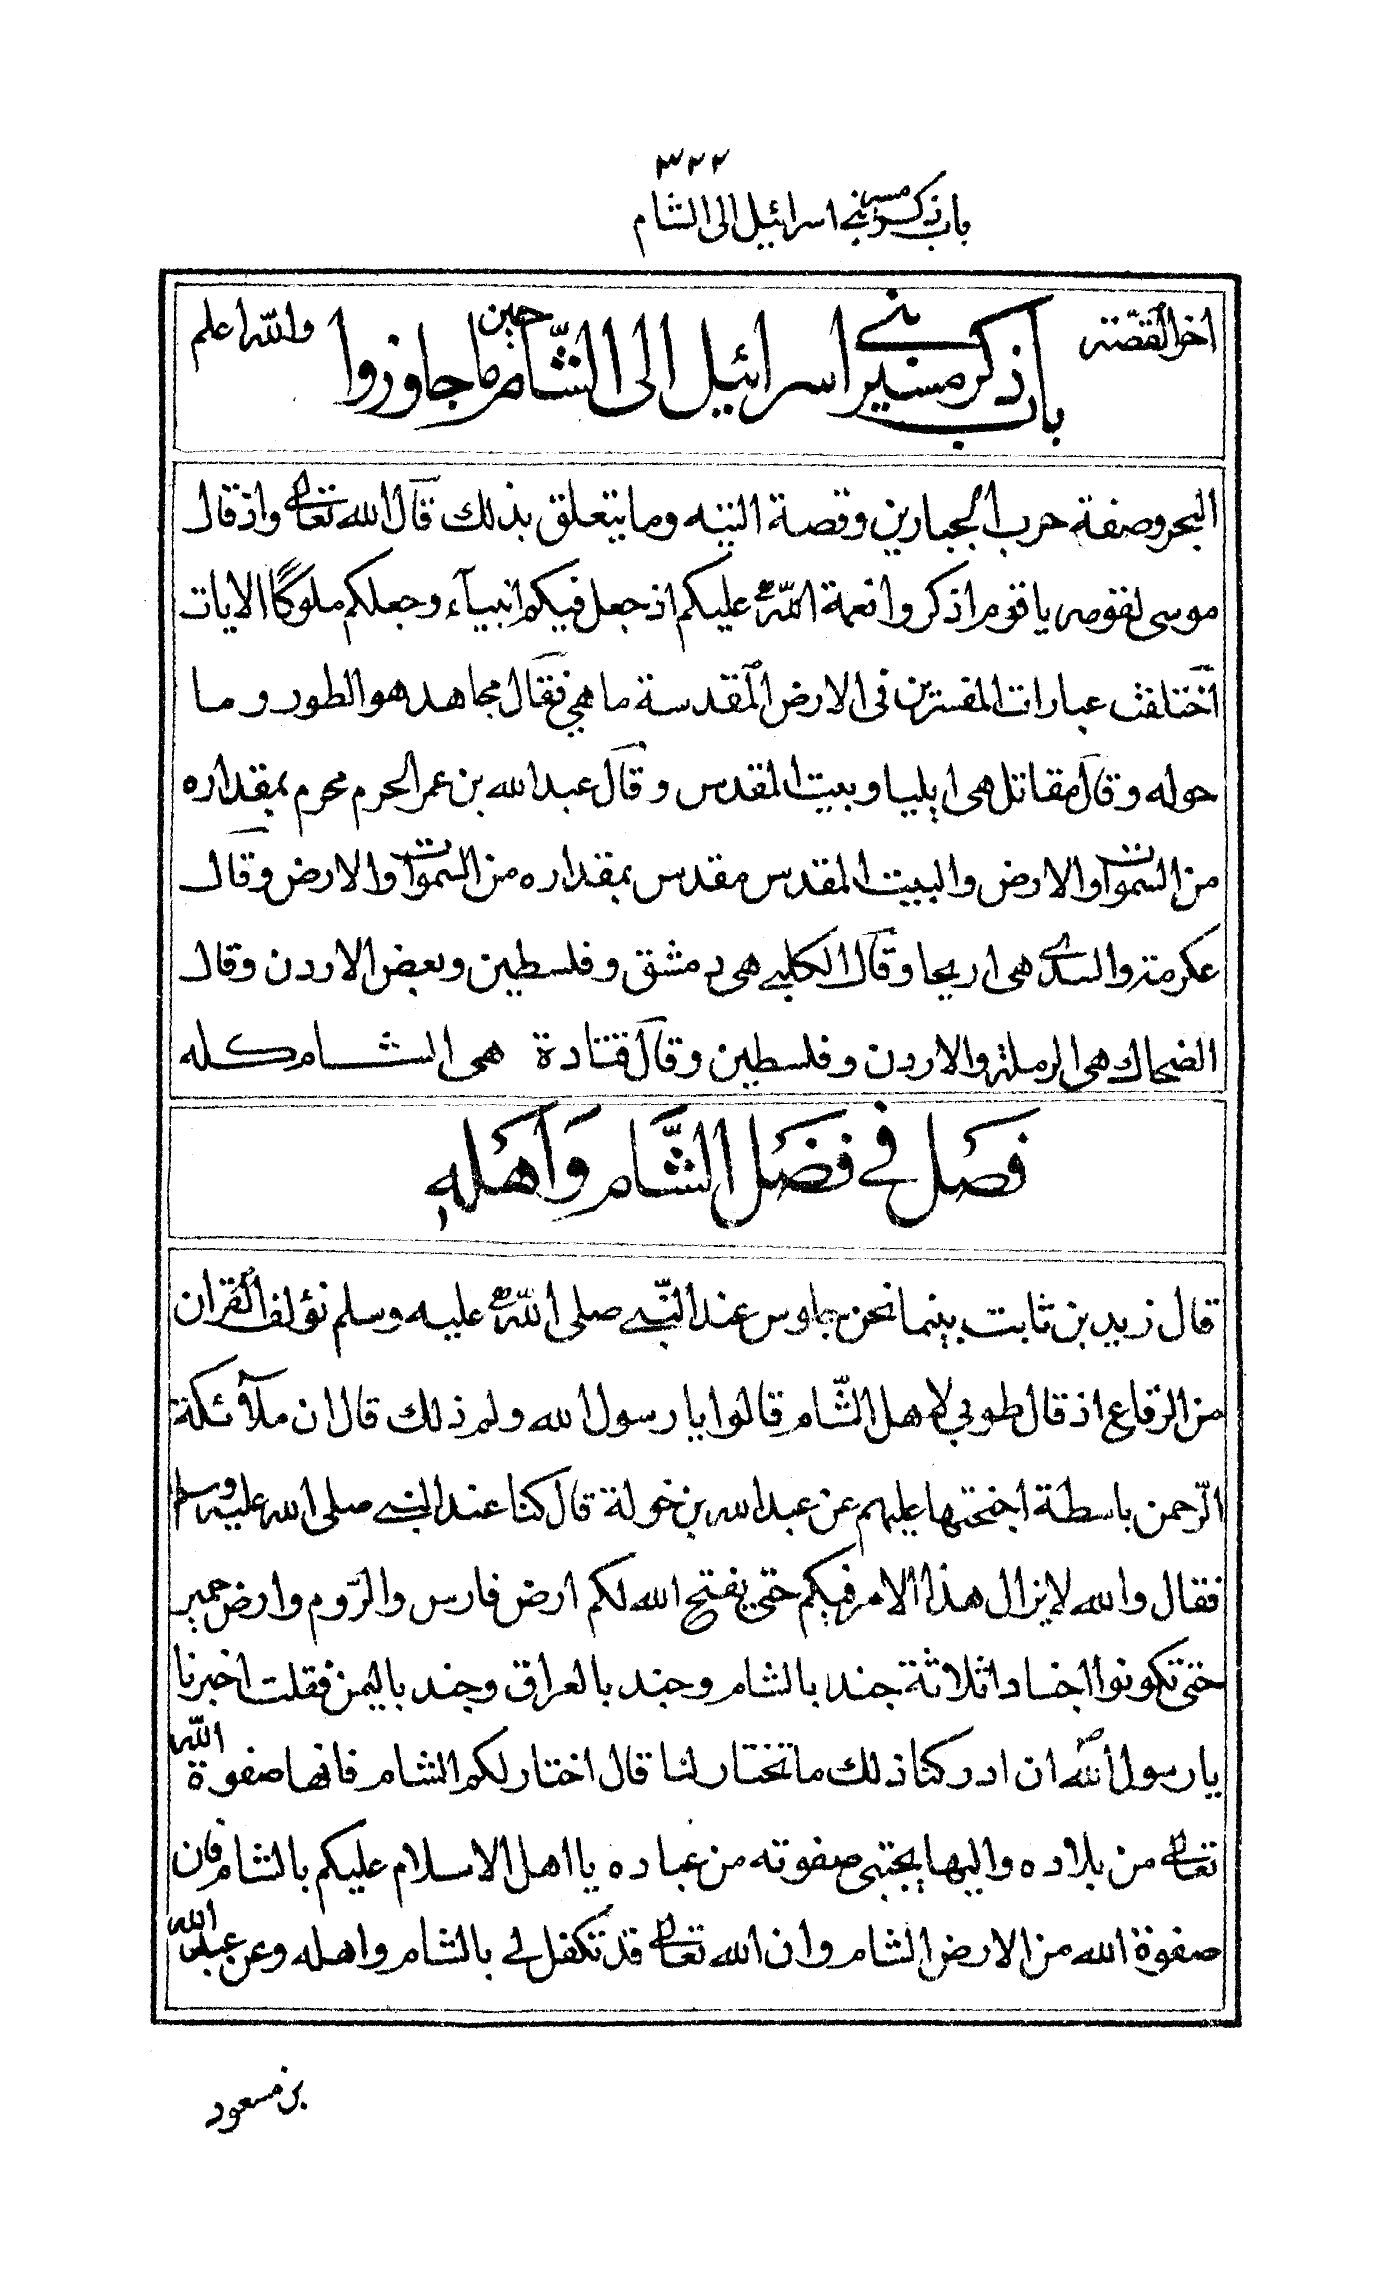 ٣٢٢
باب ذكر مسير بنى اسرائيل الى الشام
اخر القصة والله اعلم
باب ذكر مسير بنى اسرائيل الى الشام حين ما جاوزوا
البحر وصفة حرب الجبارين وقصة التيه وما يتعلق بذلك قال الله تعالى واذ قال
موسى لقومه يا قوم اذكروا نعمة الله عليكم اذ جعل فيكم انبيآء وجعلكم ملوكًا الايات
اختلفت عبارات المفسرين فى الارض المقدسة ما هي فقال مجاهد هو الطور وما
حوله وقال مقاتل هى ايليا وبيت المقدس وقال عبد الله بن عمر الحرم محرم بمقداره
من السموات والارض والبيت المقدس مقدس بمقداره من السموات والارض وقال
عكرمة والسدى هى اريحا وقال الكلبى هى دمشق وفلسطين وبعض الاردن وقال
الضحاك هى الرملة والاردن وفلسطين وقال قتادة هى الشام كله
فصل في فضل الشام واهله
قال زيد بن ثابت بينما نحن جلوس عند النبى صلى الله عليه وسلم نؤلف القران
من الرقاع اذ قال طوبى لاهل الشام قالوا يا رسول الله ولم ذلك قال ان ملآئكة
الرّحمن باسطة اجنحتها عليهم عن عبد الله بن خولة قال كنا عند النبى صلى الله عليه وسلم
فقال والله لا يزال هذا الامر فيكم حتى يفتح الله لكم ارض فارس والرّوم وارض حمير
حتى تكونوا اجنادا ثلاثة جند بالشام وجند بالعراق وجند باليمن فقلت اخبرنا
يا رسول الله ان ادركنا ذلك ما تختار لنا قال اختار لكم الشام فانها صفوة الله
تعالى من بلاده واليها يجتبى صفوته من عباده يا اهل الاسلام عليكم بالشام فان
صفوة الله من الارض الشام وان الله تعالى قد تكفل لى بالشام واهله وعن عبد الله
بن مسعود